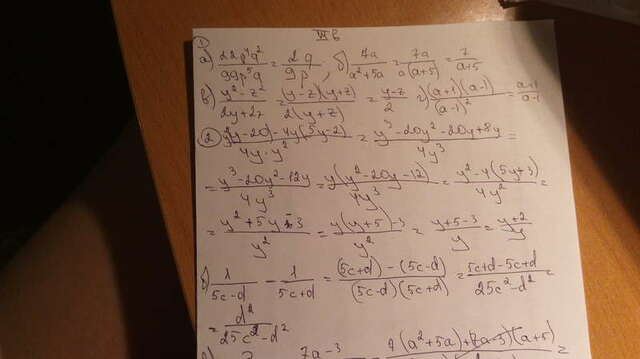 VI в
① а) 22p⁴q²/99p⁵q = 2q/9p, б) 7a/a²+5a = 7a/a(a+5) = 7/a+5
в) y²-z²/2y+2z = (y-z)(y+z)/2(y+z) = y-z/2 г) (a+1)(a-1)/(a-1)² = a+1/a-1
② y(y-20)-4y(5y-2)/4y·y² = y³-20y²-20y+8y/4y³ =
= y³-20y²-12y/4y³ = y(y²-20y-12)/4y³ = y²-4(5y+3)/4y² =
= y²+5y-3/y² = y(y+5)-3/y² = y+5-3/y = y+2/y
б) 1/5c-d - 1/5c+d = (5c+d)-(5c-d)/(5c-d)(5c+d) = 5c+d-5c+d/25c²-d² =
= d²/25c²-d²
7a-3 (a²+5a)+(7a-3)(a+5) =